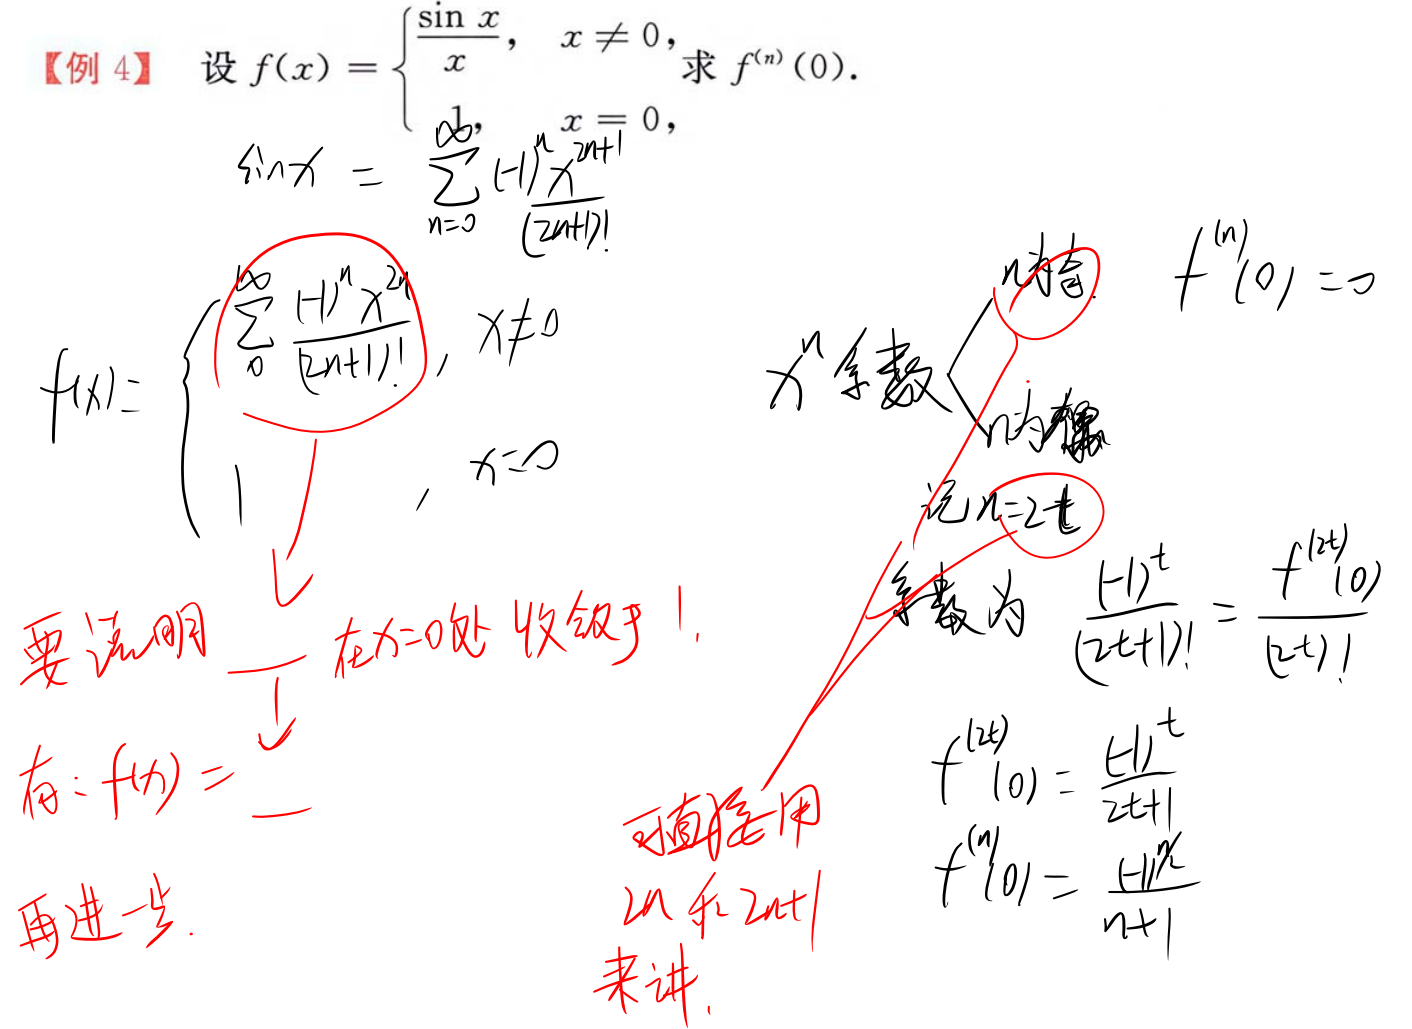 【例 4】 设 f(x) = { sin x / x, x ≠ 0, 1, x = 0, 求 f⁽ⁿ⁾(0).
sinx = ∑_{n=0}^{∞} (-1)ⁿ x^{2n+1} / (2n+1)!
f(x) = { ∑_{0}^{∞} (-1)ⁿ x^{2n} / (2n+1)! , x≠0
1 , x=0
要说明 ___ 在x=0处 收敛于 1.
有: f(x) = ___
再进一步.
xⁿ系数
n为奇. f⁽ⁿ⁾(0) = 0
n为偶
记 n=2t
系数为 (-1)^t / (2t+1)! = f^{(2t)}(0) / (2t)!
f^{(2t)}(0) = (-1)^t / 2t+1
f⁽ⁿ⁾(0) = (-1)^{n/2} / n+1
可直接用
2n 和 2n+1
来讲.